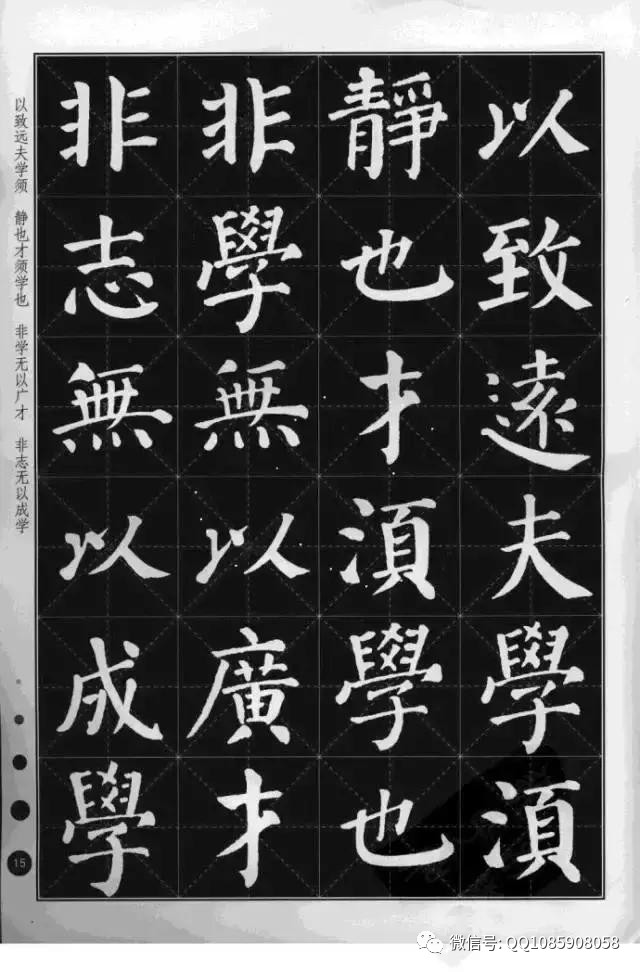 以致遠夫學須
靜也才須學也
非學無以廣才
非志無以成學
以致远夫学须　静也才须学也　非学无以广才　非志无以成学
15
微信号: QQ1085908058